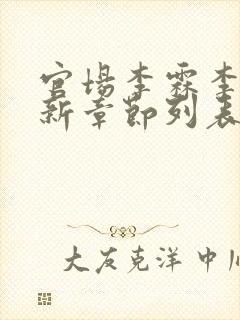 官场李霖李
新章节列表
大友克洋 中川